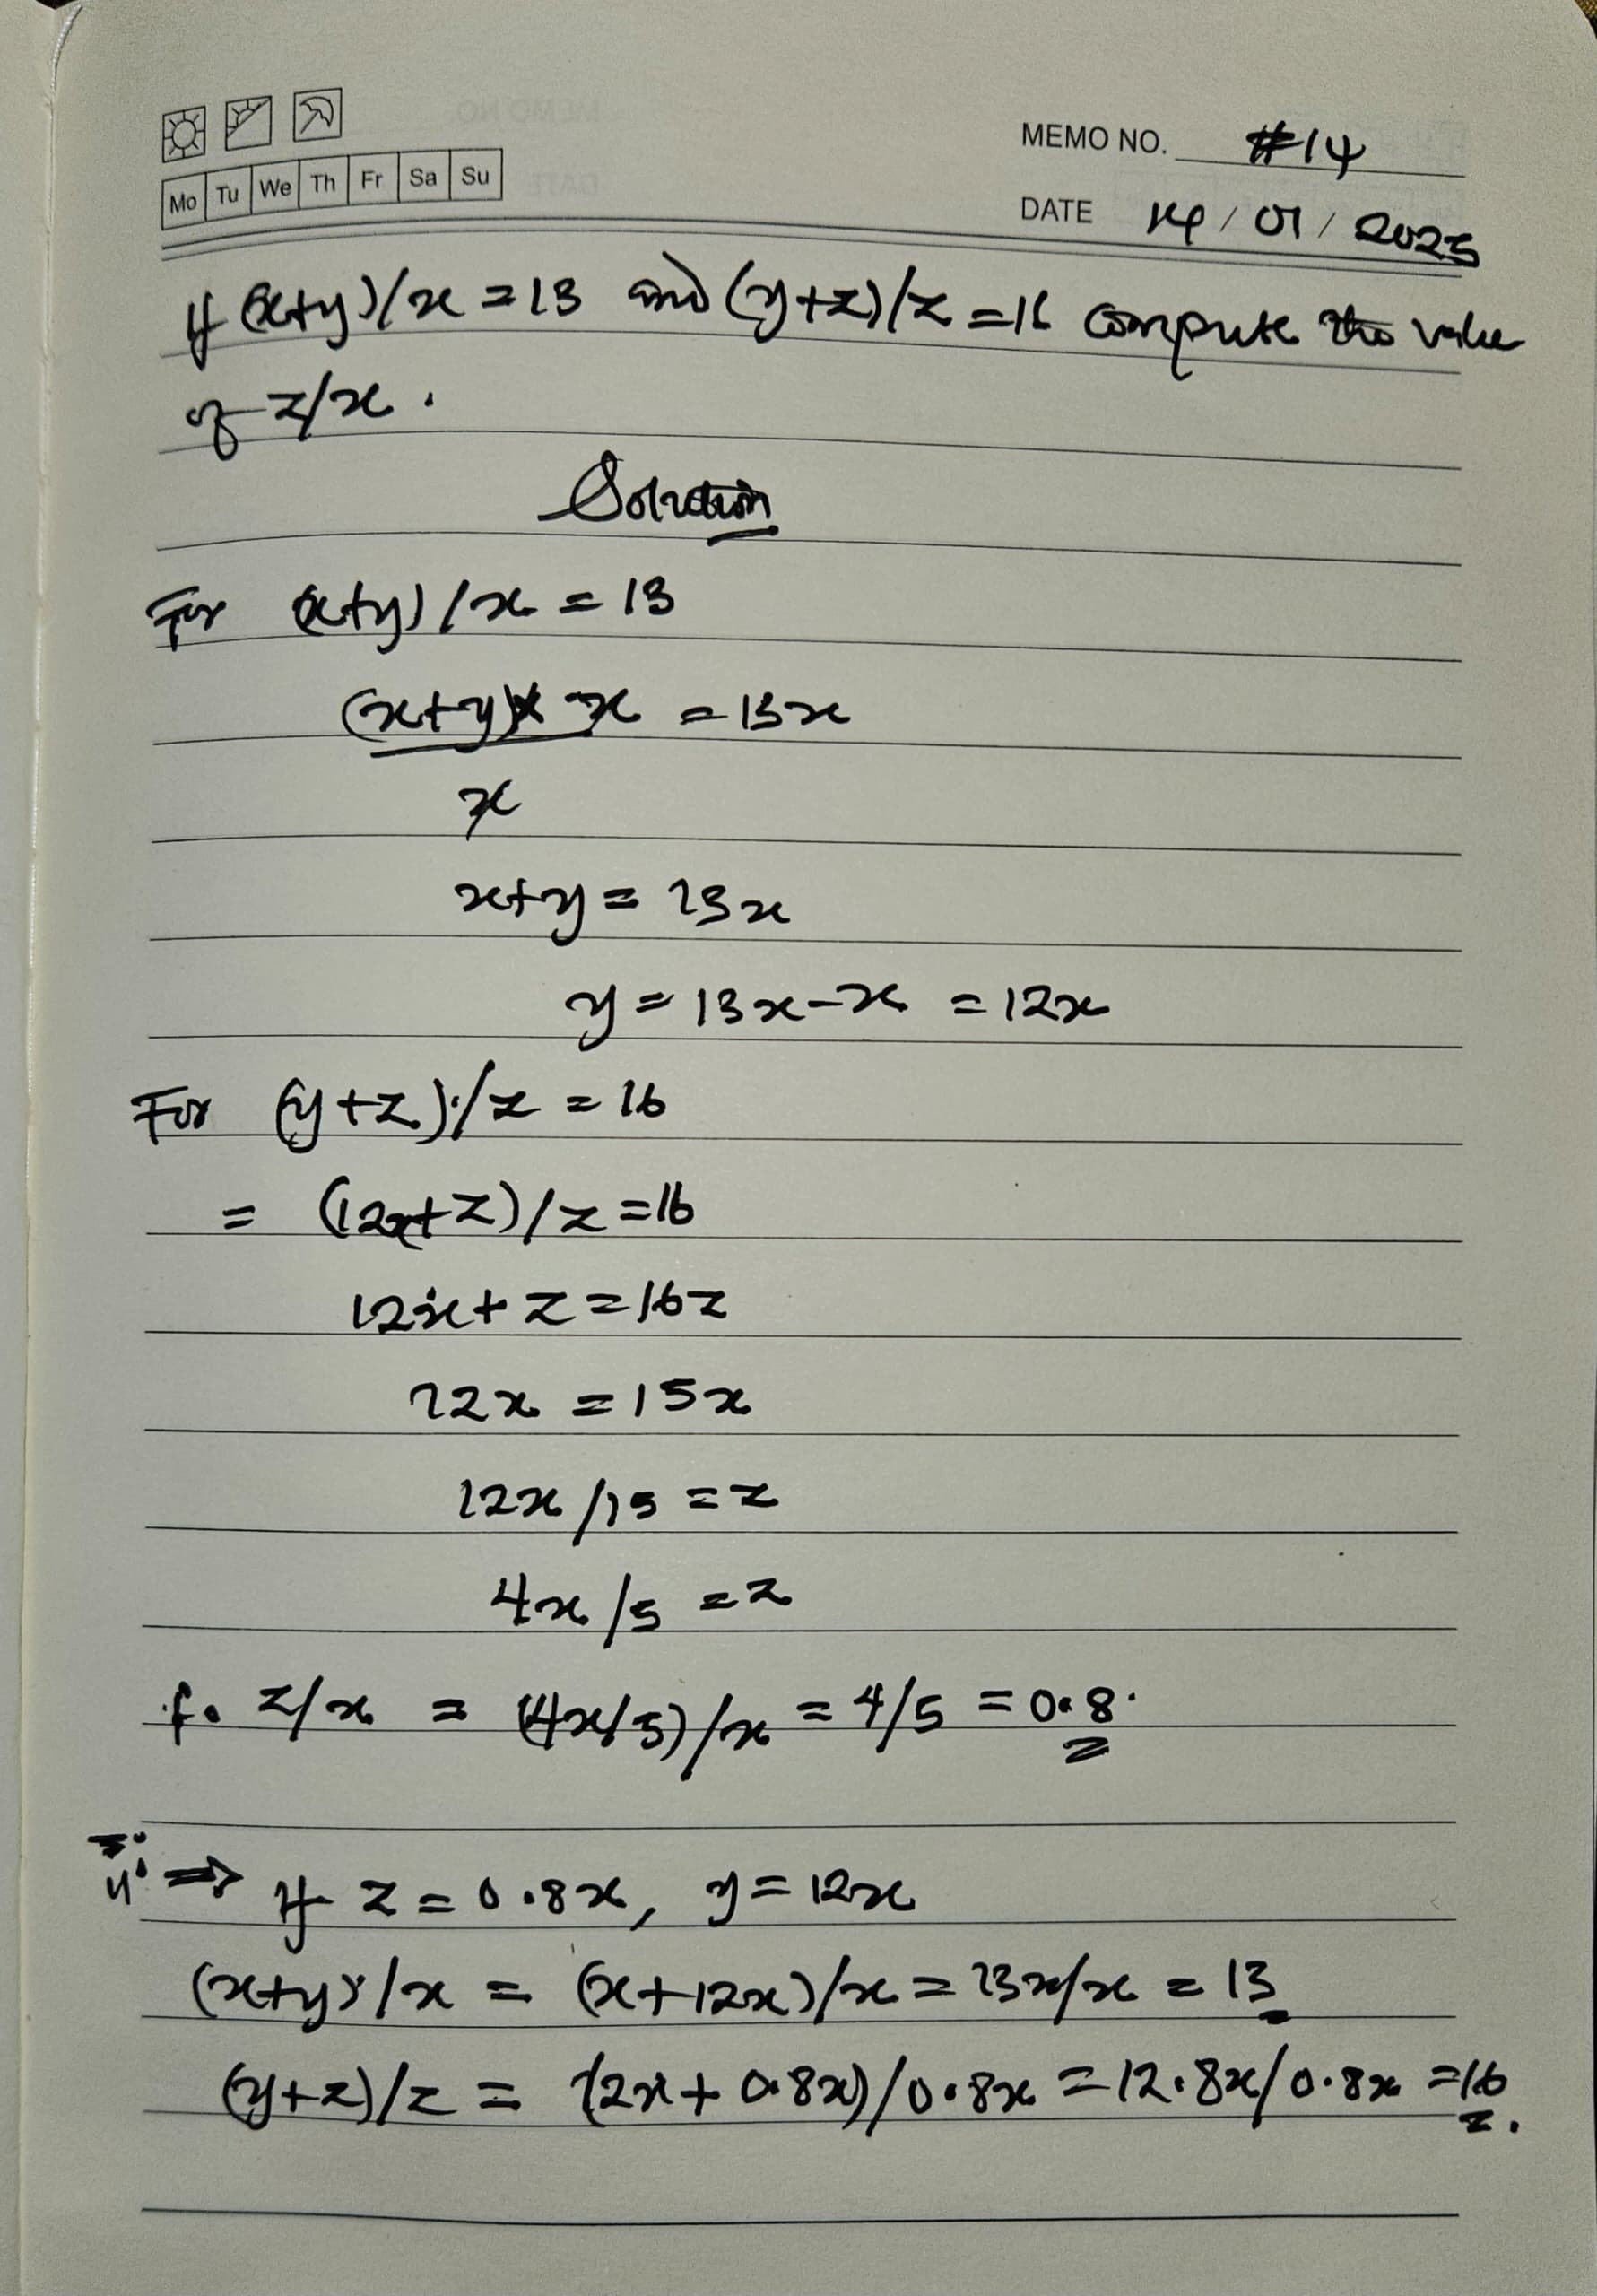 MEMO NO. #14
Mo Tu We Th Fr Sa Su
DATE 14/01/2025
If (x+y)/x = 13 and (y+z)/z = 16 compute the value
of z/x.
Solution
For (x+y)/x = 13
(x+y) × x = 13x
x
x+y = 13x
y = 13x-x = 12x
For (y+z)/z = 16
= (12x+z)/z = 16
12x+z = 16z
12x = 15x
12x/15 = z
4x/5 = z
z/x = (4x/5)/x = 4/5 = 0.8.
⇒ If z = 0.8x, y = 12x
(x+y)/x = (x+12x)/x = 13x/x = 13
(y+z)/z = (12x + 0.8x)/0.8x = 12.8x/0.8x = 16.